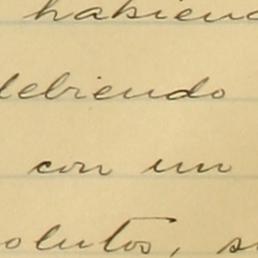 habiend
debiendo
con un
olutos, s